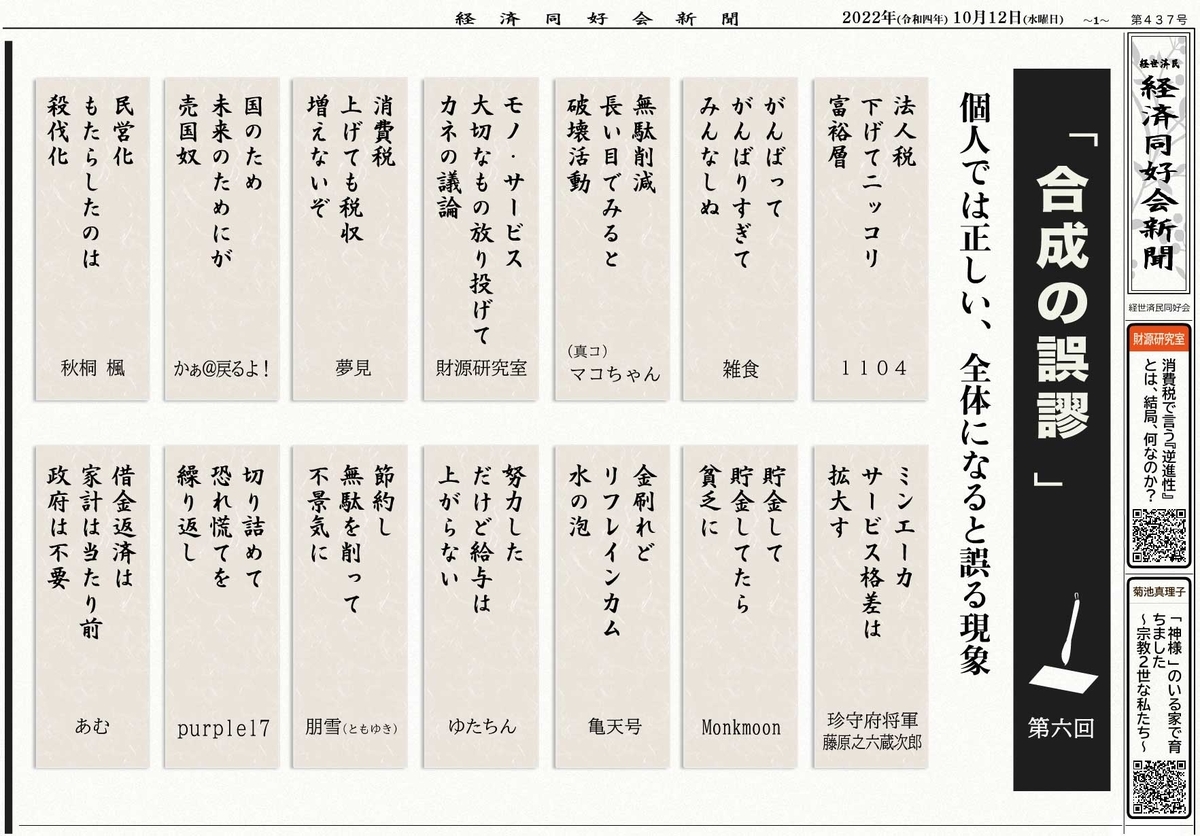 経済同好会新聞
2022年(令和四年) 10月12日(水曜日)
～1～
第４３７号
経世済民
経済同好会新聞
経世済民同好会
財源研究室
消費税で言う『逆進性』
とは、結局、何なのか？
菊池真理子
「神様」のいる家で育
ちました
～宗教２世な私たち～
「合成の誤謬」
第六回
個人では正しい、全体になると誤る現象
法人税
下げてニッコリ
富裕層
１１０４
がんばって
がんばりすぎて
みんなしぬ
雑食
無駄削減
長い目でみると
破壊活動
(真コ)
マコちゃん
モノ・サービス
大切なもの放り投げて
カネの議論
財源研究室
消費税
上げても税収
増えないぞ
夢見
国のため
未来のためにが
売国奴
かぁ@戻るよ！
民営化
もたらしたのは
殺伐化
秋桐 楓
ミンエーカ
サービス格差は
拡大す
珍守府将軍
藤原之六蔵次郎
貯金して
貯金してたら
貧乏に
Monkmoon
金刷れど
リフレインカム
水の泡
亀天号
努力した
だけど給与は
上がらない
ゆたちん
節約し
無駄を削って
不景気に
朋雪(ともゆき)
切り詰めて
恐れ慌てを
繰り返し
purple17
借金返済は
家計は当たり前
政府は不要
あむ